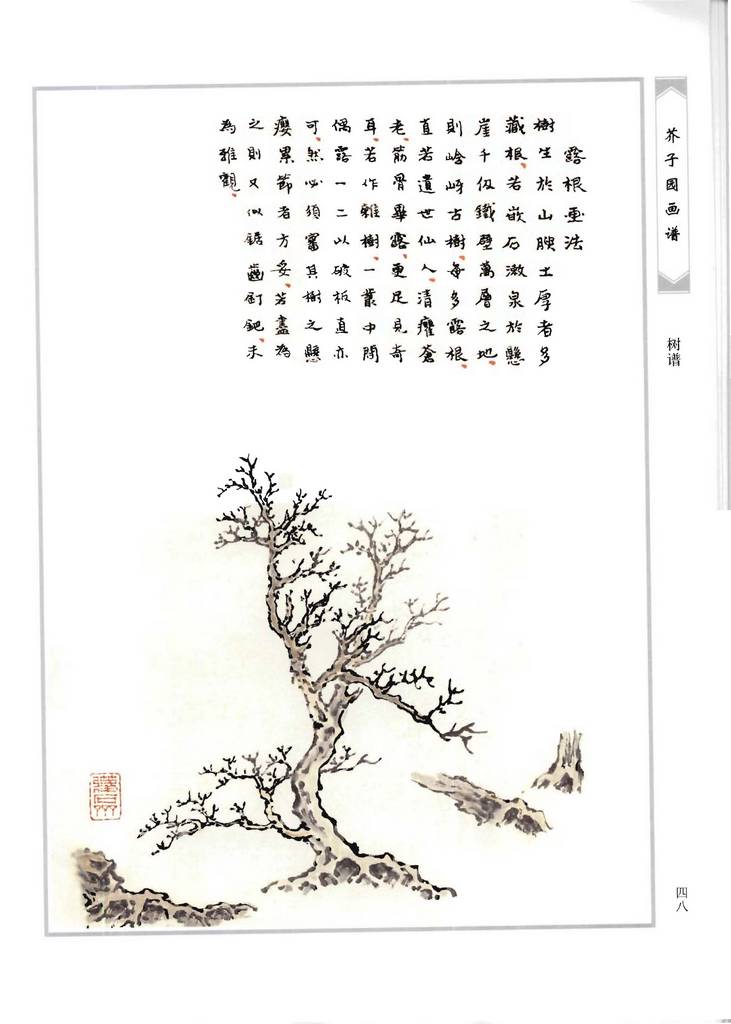 芥子园画谱
树谱
四八
露根画法
樹生於山腴土厚者多
藏根、若嵌石漱泉於懸
崖千仭鐵壁萬層之地、
則古樹每多露根、
直若遺世仙人、清癯蒼
老、筋骨畢露、更足見奇
耳、若作雜樹、一叢中間
偶露一二以破板直亦
可、然必須審其樹之懸
癭累節者方妥、若盡為
之則又似鋸齒釘鈀、未
為雅觀、